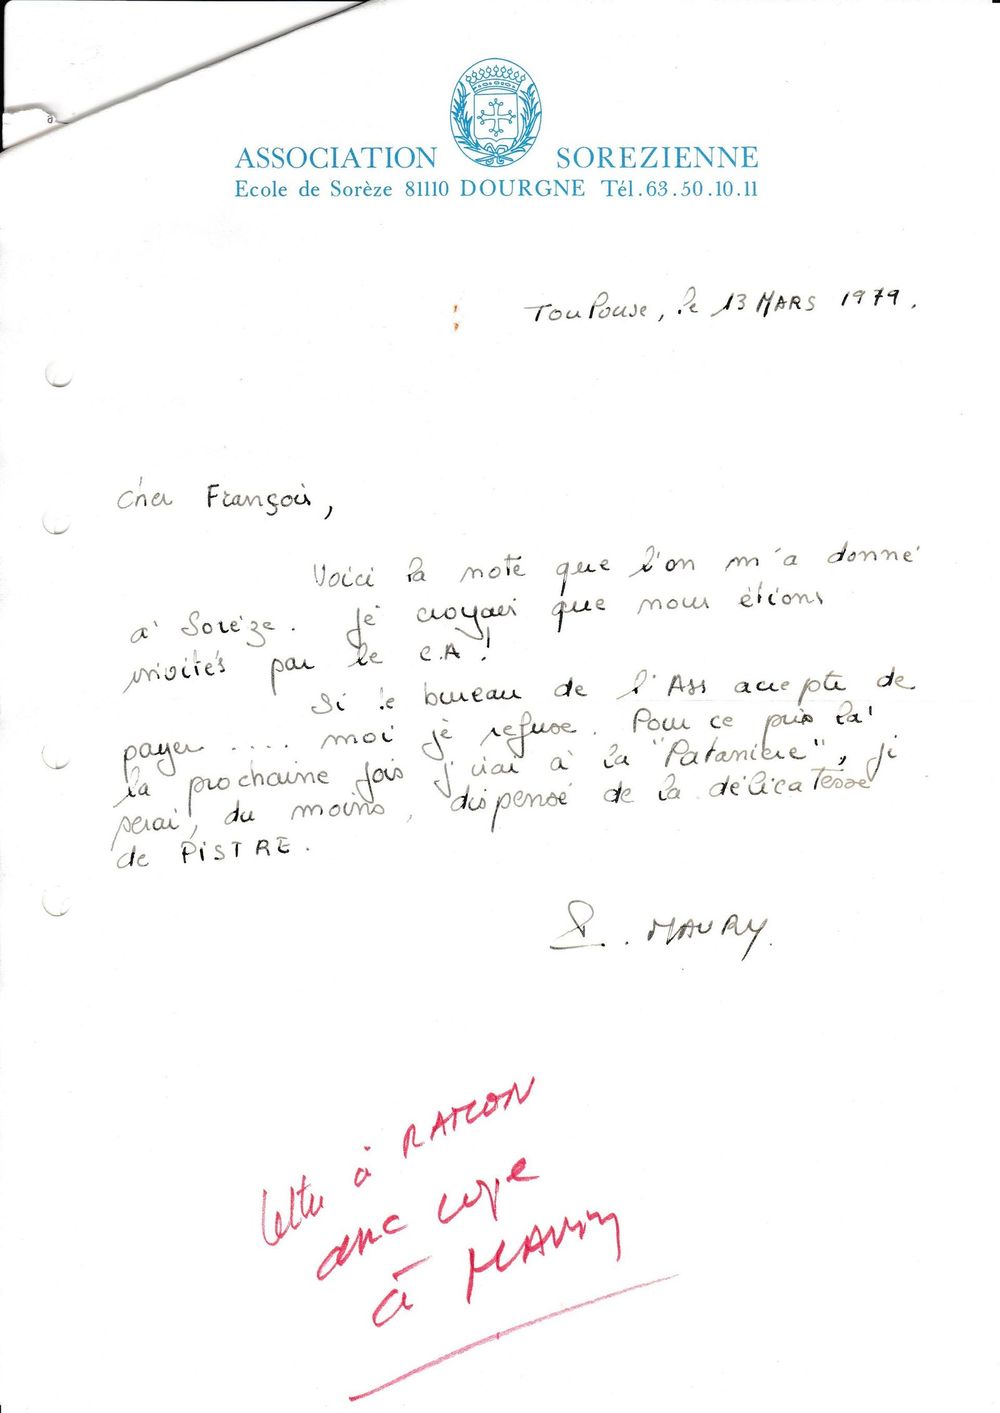 ASSOCIATION SOREZIENNE
Ecole de Sorèze 81110 DOURGNE Tél.63.50.10.11
Toulouse, le 13 MARS 1979.
Cher François,
Voici la note que l'on m'a donné
à Sorèze. Je croyais que nous étions
invités par le C.A!
Si le bureau de l'Ass accepte de
payer .... moi je refuse. Pour ce prix là
la prochaine fois j'irai à la "Pataniere", je
serai, du moins, dispensé de la délicatesse
de PISTRE.
P. MAURY
lettre à RATCON
avec copie
à MAURY